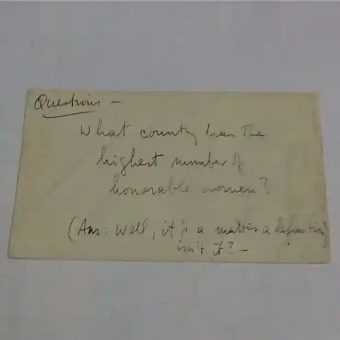 Questions —
What county has the
highest number of
honorable women?
(Ans: Well, it's a matter a definition)
isn't it? —